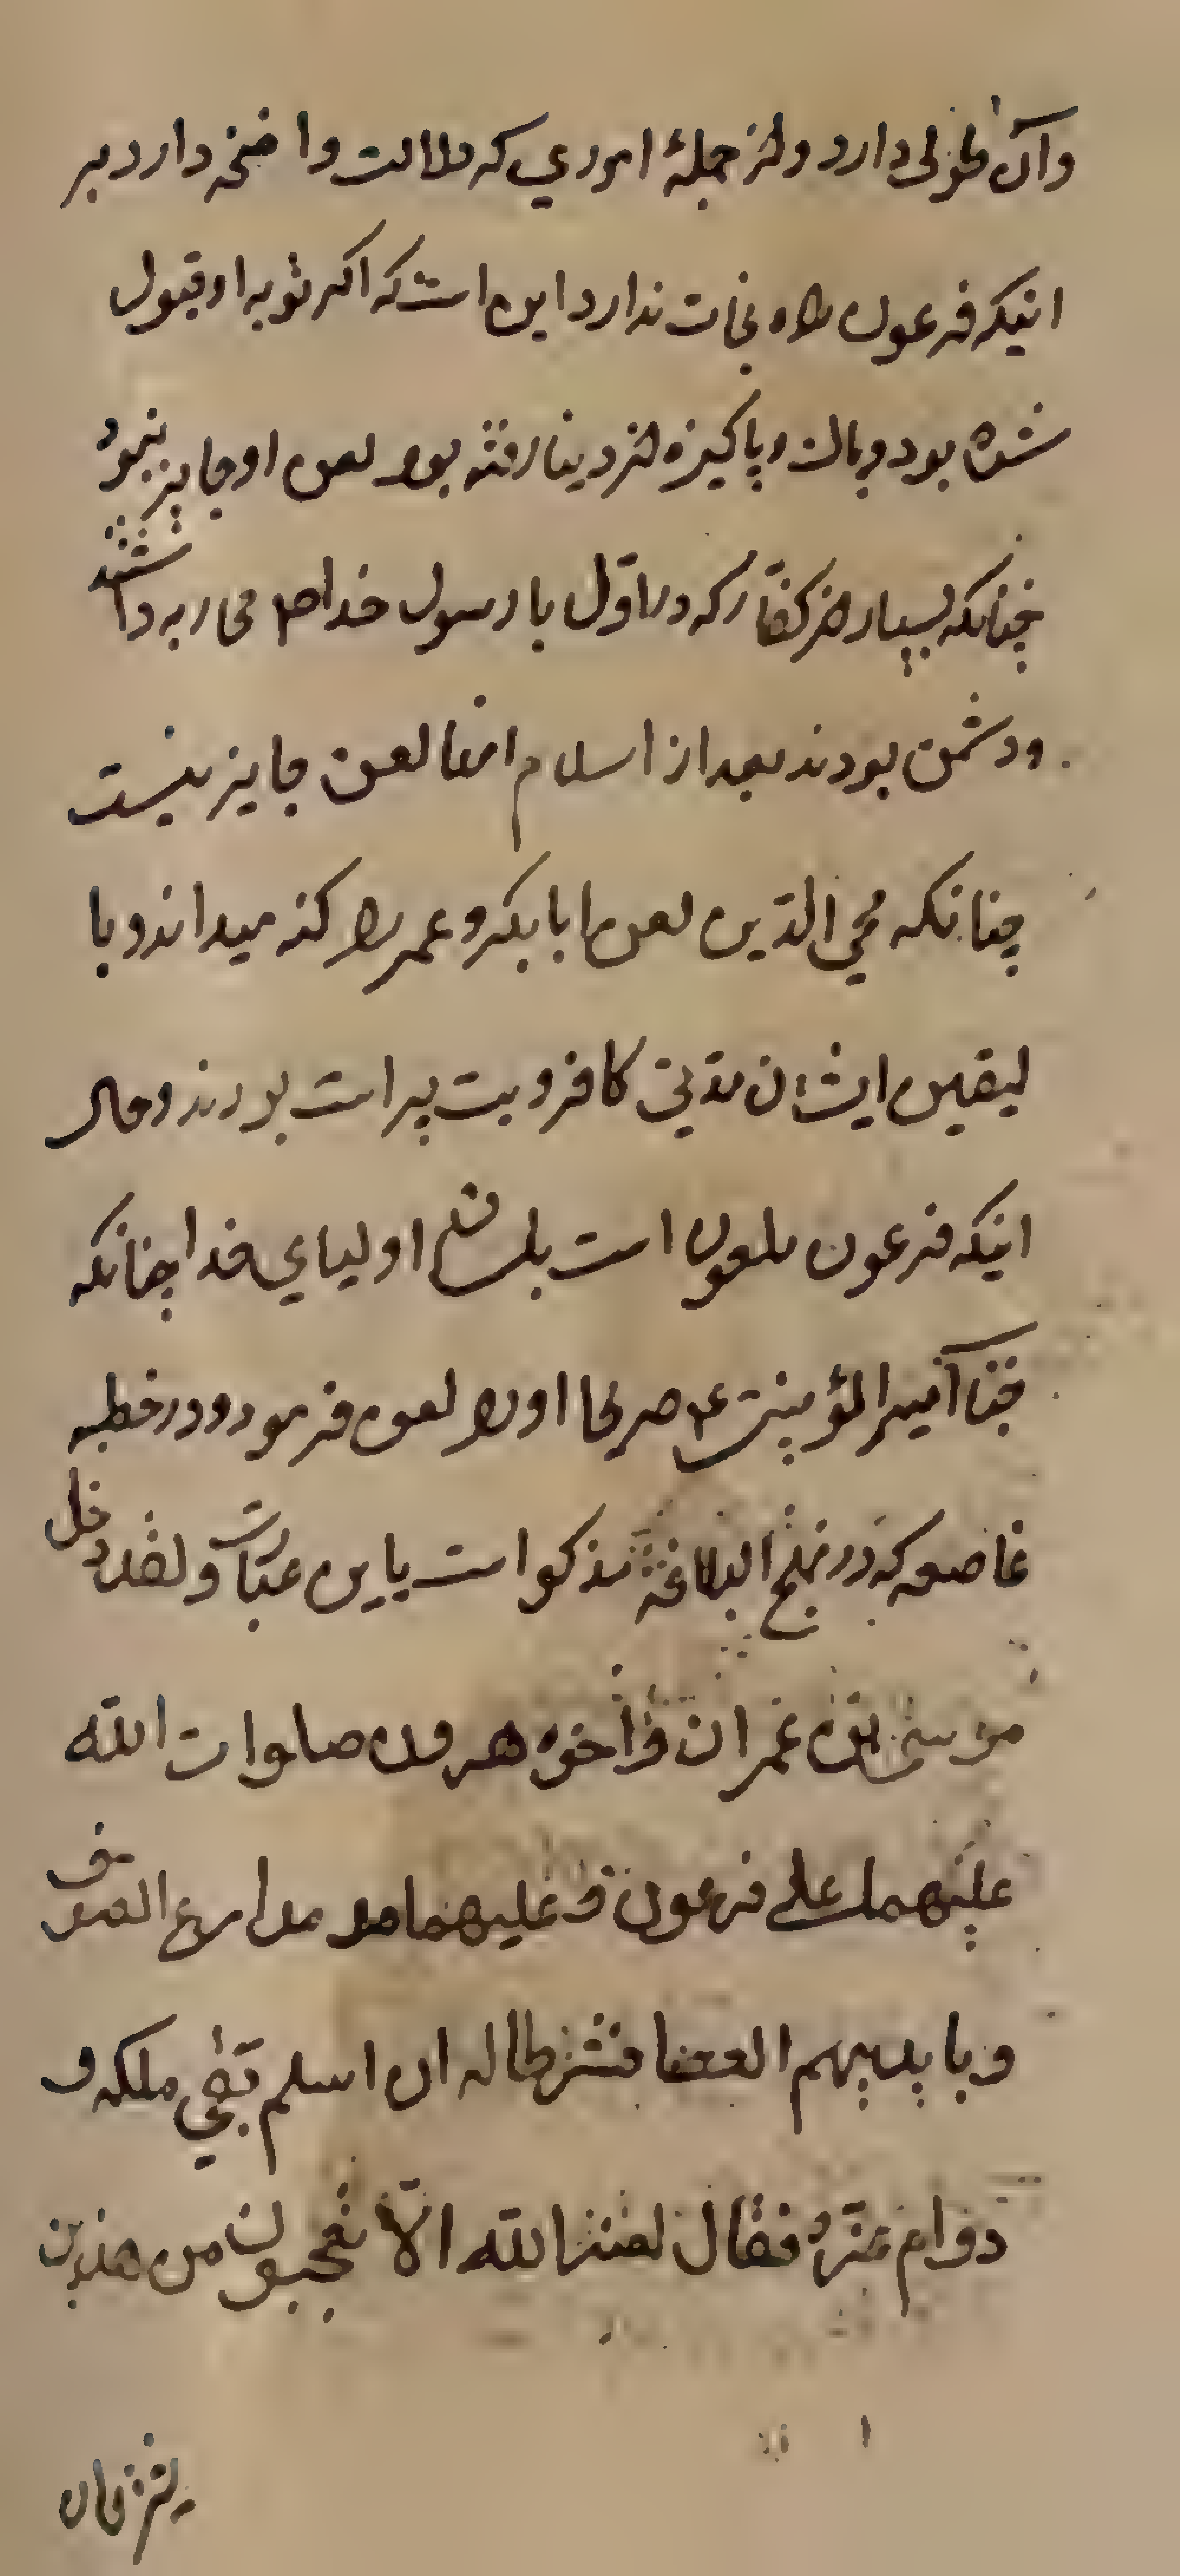 وآن طولی دارد واز جملهٔ اموری که دلالت واضحه دارد بر
اینکه فرعون راه نجات ندارد این است که اکر توبه او قبول
شده بود و پاک و پاکیزه از دینا رفته بود لعن او جایز نبود
چنانکه بسیار از کفّار که در اوّل با رسول خدا ص محاربه داشتند
ودشمن بودند بعد از اسلام انها لعن جایز نیست
چنانکه محی الدّین لعن ابابکر و عمر را کفر میداند و با
لیقین ایشان مدّتی کافر و بت پرست بودند و حال
اینکه فرعون ملعون است بلسان اولیای خدا چنانکه
جناب امیر المؤمنین ع صریحا او را لعن فرمود و در خطبه
قاصعه که در نهج البلاغة مذکور است باین عبارت ولقد دخل
موسی بن عمران و اخوه هرون صلوات الله
علیهما علی فرعون و علیهما مدارع الصوف
و بایدیهم العصا فشرطا له ان اسلم بقی ملکه و
دوام عزّه فقال لعنه الله الّا تعجبون من هذین
یشرطان